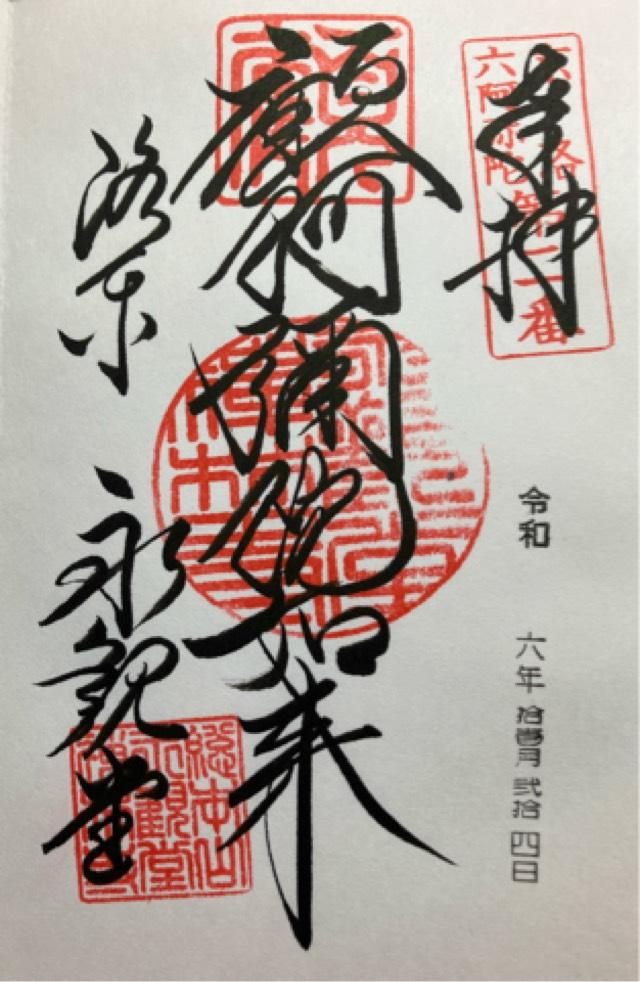 奉拝
京洛第二番
六阿弥陀
令和 六年 拾壹月 弐拾 四日
顧阿彌陀如来
洛东 永観堂
総本山
永観堂
禅林寺